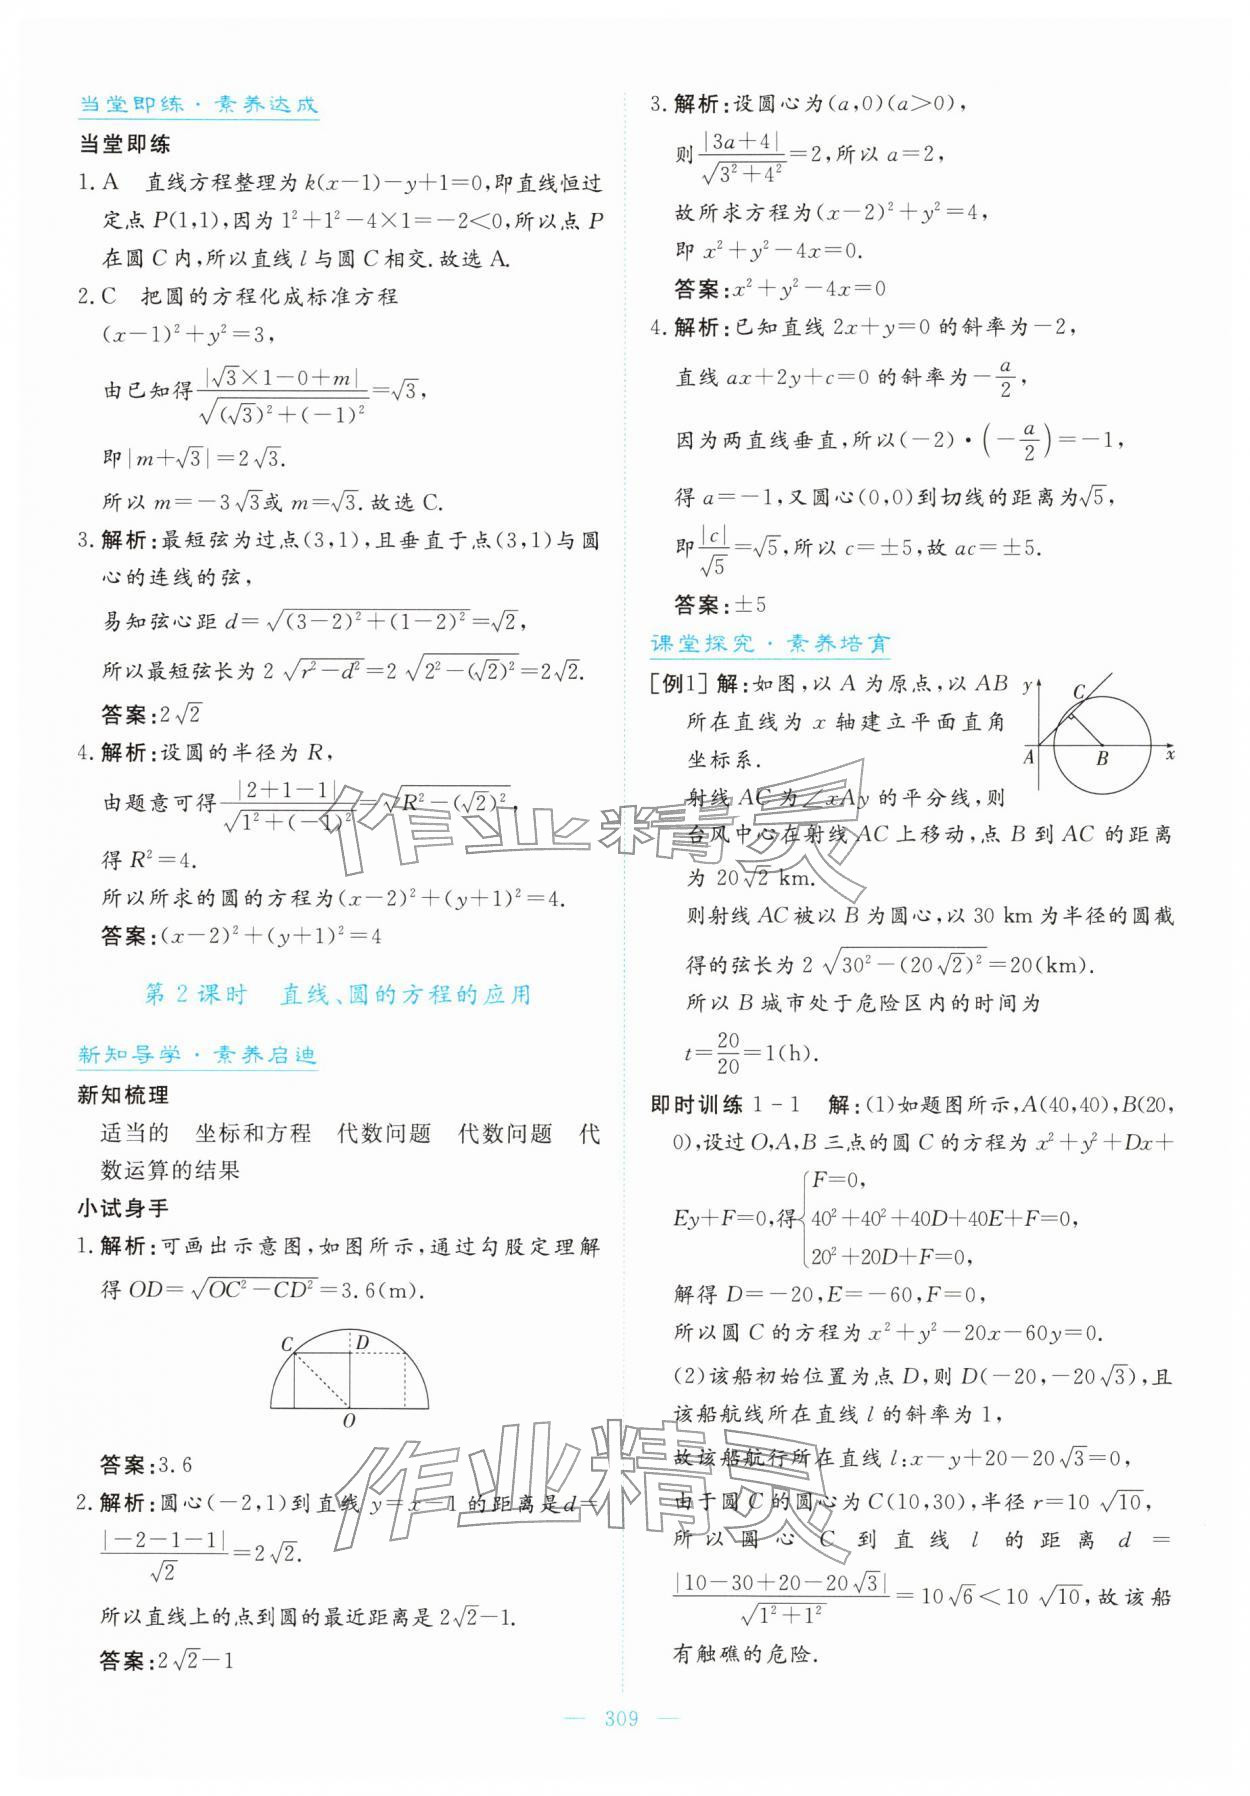 当堂即练·素养达成
当堂即练
1. A　直线方程整理为 k(x−1)−y+1=0,即直线恒过
定点 P(1,1),因为 1²+1²−4×1=−2<0,所以点 P
在圆 C 内,所以直线 l 与圆 C 相交.故选 A.
2. C　把圆的方程化成标准方程
(x−1)²+y²=3,
由已知得|√3×1−0+m|/√((√3)²+(−1)²)=√3,
即|m+√3|=2√3.
所以 m=−3√3或 m=√3.故选 C.
3. 解析:最短弦为过点(3,1),且垂直于点(3,1)与圆
心的连线的弦,
易知弦心距 d=√((3−2)²+(1−2)²)=√2,
所以最短弦长为 2√(r²−d²)=2√(2²−(√2)²)=2√2.
答案:2√2
4. 解析:设圆的半径为 R,
由题意可得|2+1−1|/√(1²+(−1)²)=√(R²−(√2)²),
得 R²=4.
所以所求的圆的方程为(x−2)²+(y+1)²=4.
答案:(x−2)²+(y+1)²=4
第 2 课时　直线、圆的方程的应用
新知导学·素养启迪
新知梳理
适当的　坐标和方程　代数问题　代数问题　代
数运算的结果
小试身手
1. 解析:可画出示意图,如图所示,通过勾股定理解
得 OD=√(OC²−CD²)=3.6(m).
C D
O
答案:3.6
2. 解析:圆心(−2,1)到直线 y=x−1 的距离是d=
|−2−1−1|/√2=2√2.
所以直线上的点到圆的最近距离是 2√2−1.
答案:2√2−1
3. 解析:设圆心为(a,0)(a>0),
则|3a+4|/√(3²+4²)=2,所以 a=2,
故所求方程为(x−2)²+y²=4,
即 x²+y²−4x=0.
答案:x²+y²−4x=0
4. 解析:已知直线 2x+y=0 的斜率为−2,
直线 ax+2y+c=0 的斜率为−a/2,
因为两直线垂直,所以(−2)·(−a/2)=−1,
得 a=−1,又圆心(0,0)到切线的距离为√5,
即|c|/√5=√5,所以 c=±5,故 ac=±5.
答案:±5
课堂探究·素养培育
[例1] 解:如图,以 A 为原点,以 AB
所在直线为 x 轴建立平面直角
坐标系.
y C
A B x
射线 AC 为∠xAy 的平分线,则
台风中心在射线 AC 上移动,点 B 到 AC 的距离
为 20√2 km.
则射线 AC 被以 B 为圆心,以 30 km 为半径的圆截
得的弦长为 2√(30²−(20√2)²)=20(km).
所以 B 城市处于危险区内的时间为
t=20/20=1(h).
即时训练 1-1　解:(1)如题图所示,A(40,40),B(20,
0),设过 O,A,B 三点的圆 C 的方程为 x²+y²+Dx+
Ey+F=0,得{F=0,
40²+40²+40D+40E+F=0,
20²+20D+F=0,
解得 D=−20,E=−60,F=0,
所以圆 C 的方程为 x²+y²−20x−60y=0.
(2)该船初始位置为点 D,则 D(−20,−20√3),且
该船航线所在直线 l 的斜率为 1,
故该船航行所在直线 l:x−y+20−20√3=0,
由于圆 C 的圆心为 C(10,30),半径 r=10√10,
所以圆心 C 到直线 l 的距离 d=
|10−30+20−20√3|/√(1²+1²)=10√6<10√10,故该船
有触礁的危险.
309
作业精灵
作业精灵